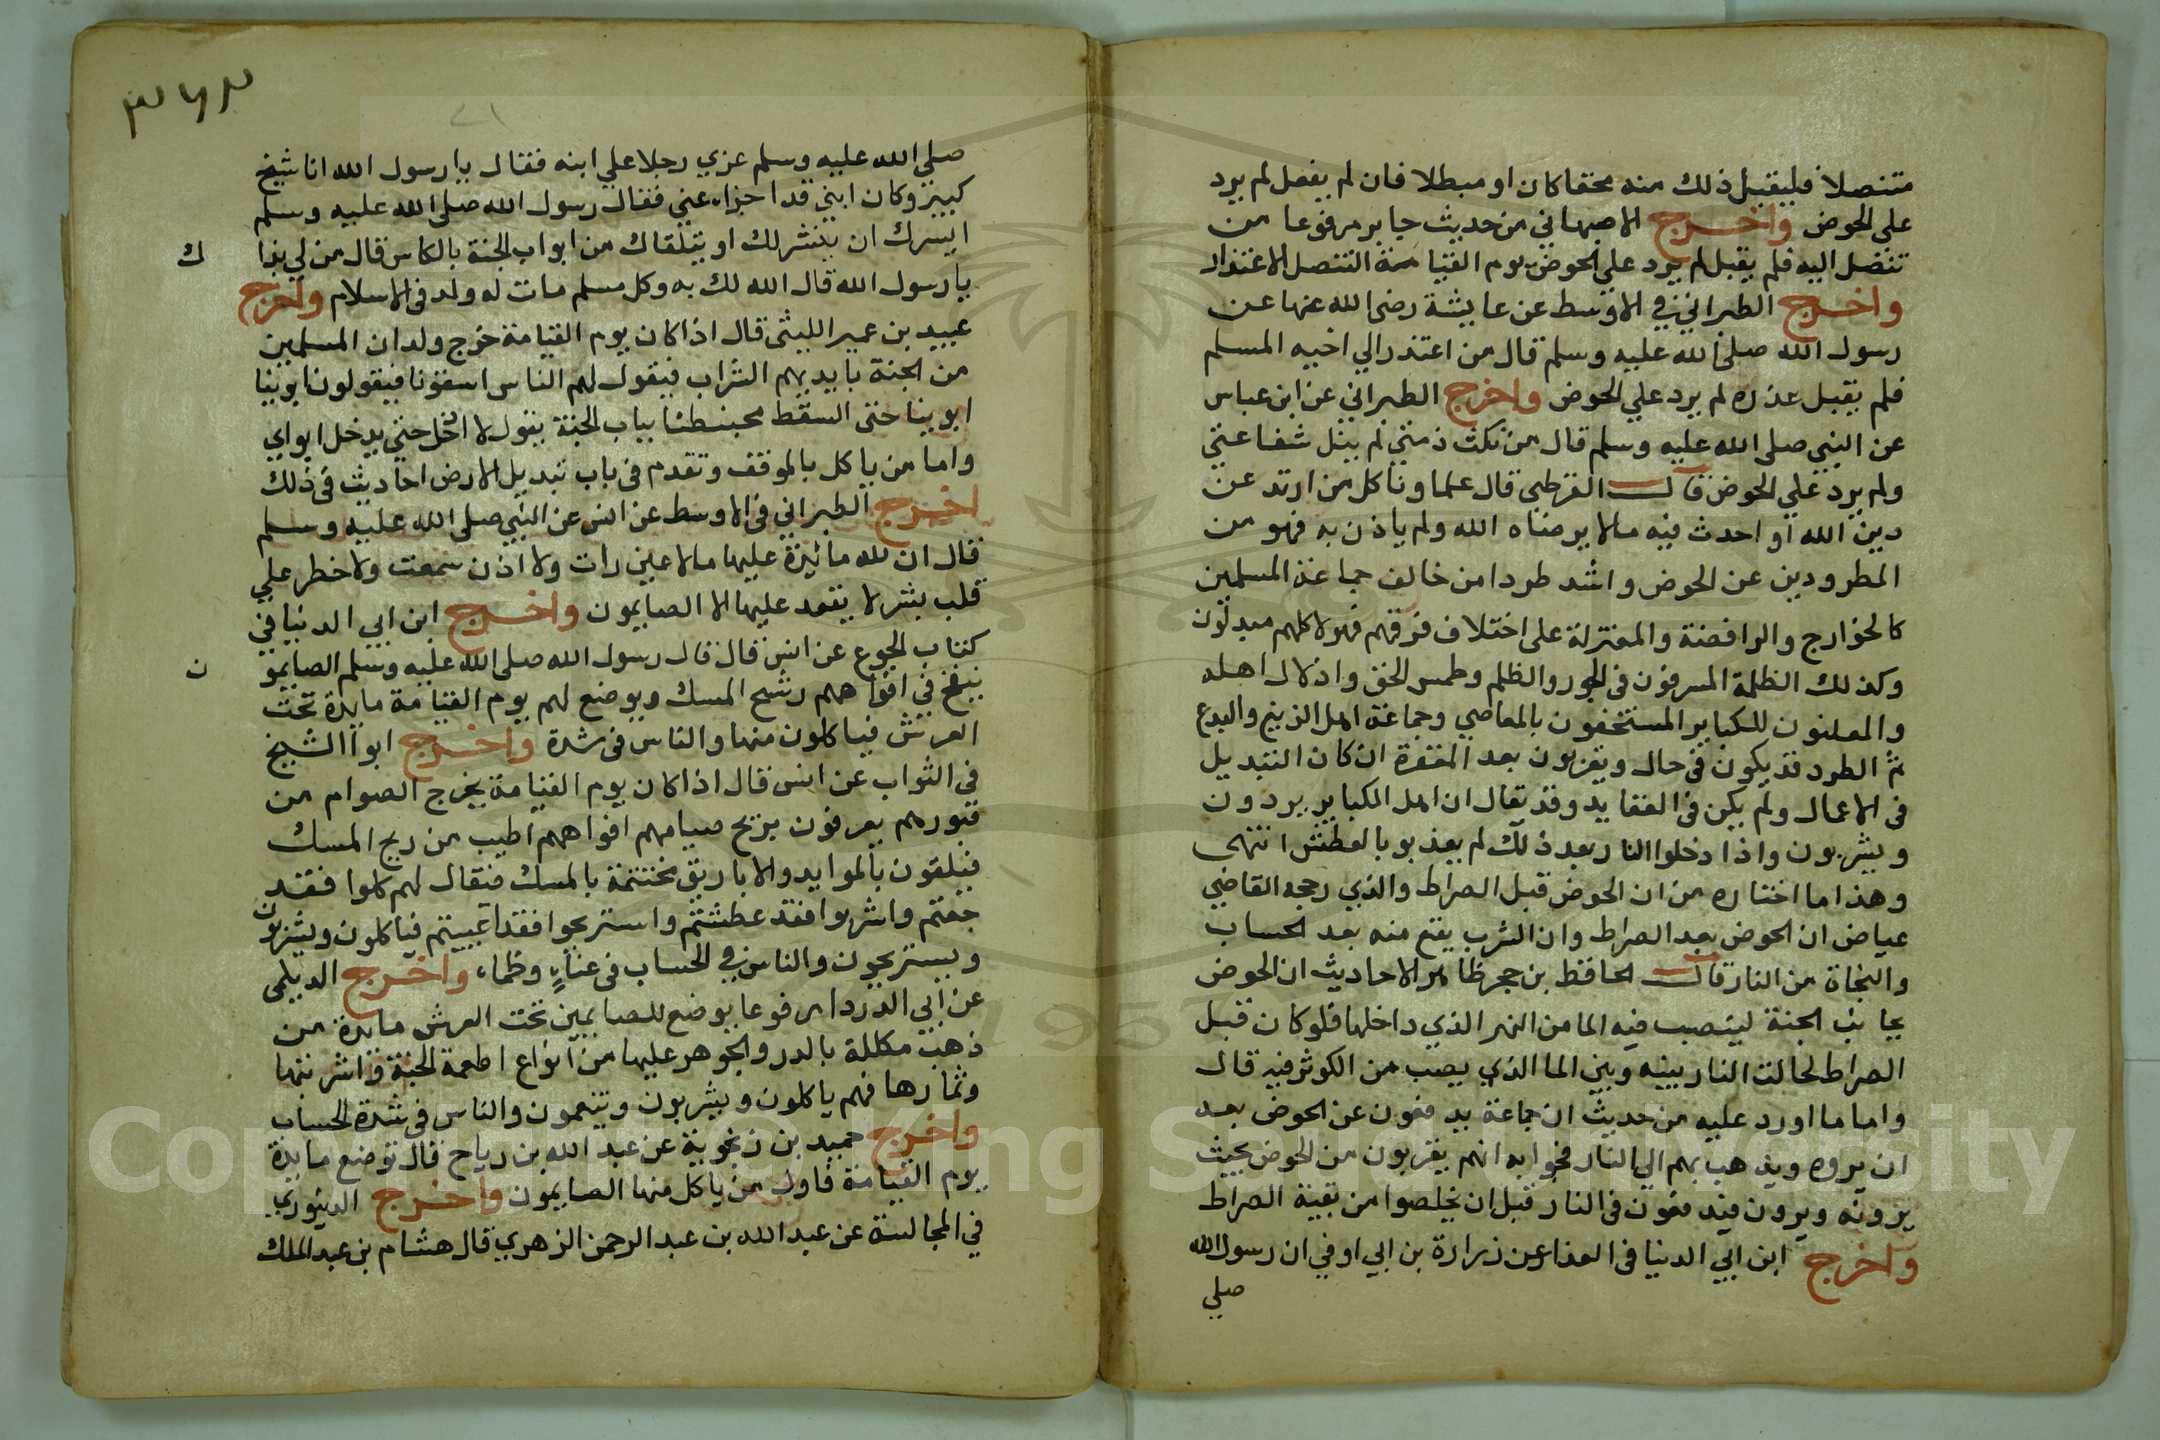 متنصلا فليقبل ذلك منه محقا كان او مبطلا فان لم يفعل لم يرد
على الحوض واخرج الاصبهاني من حديث جابر مرفوعا من
تنصل اليه فلم يقبل لم يرد على الحوض يوم القيامة التنصل الاعتذار
واخرج الطبراني في الاوسط عن عايشة رضى الله عنها عن
رسول الله صلى الله عليه وسلم قال من اعتذر الي اخيه المسلم
فلم يقبل عذره لم يرد علي الحوض واخرج الطبراني عن ابن عباس
عن النبي صلى الله عليه وسلم قال من نكث ذمتي لم ينل شفاعتي
ولم يرد علي الحوض قال القرطبى قال علماونا كل من ارتد عن
دين الله او احدث فيه مالا يرضاه الله ولم ياذن به فهو من
المطرودين عن الحوض واشد طردا من خالف جماعة المسلمين
كالخوارج والرافضة والمعتزلة على اختلاف فرقهم فهولا كلهم مبدلون
وكذلك الظلمة المسرفون فى الجور والظلم وطمس الحق واذلال اهله
والمعلنون للكباير المستخفون بالمعاصي وجماعة اهل الزيغ والبدع
ثم الطرد قد يكون في حال ويقربون بعد المغفرة ان كان التبديل
فى الاعمال ولم يكن فى العقايد وقد يقال ان اهل الكباير يردون
ويشربون واذا دخلوا النار بعد ذلك لم يعذبوا بالعطش انتهى
وهذا ما اختاره من ان الحوض قبل الصراط والذي رجحه القاضي
عياض ان الحوض بعد الصراط وان الشرب يقع منه بعد الحساب
والنجاة من النار قال الحافظ بن حجر ظاهر الاحاديث ان الحوض
بجانب الجنة لينصب فيه الما من النهر الذي داخلها فلو كان قبل
الصراط لحالت النار بينه وبين الما الذي يصب من الكوثر فيه قال
واما ما اورد عليه من حديث ان جماعة يدفعون عن الحوض بعد
ان يروه ويذهب بهم الي النار فجوابه انهم يقربون من الحوض بحيث
يرونه ويرون فيدفعون فى النار قبل ان يخلصوا من بقية الصراط
واخرج ابن ابي الدنيا فى العزا عن زرارة بن ابي اوفي ان رسول الله
صلي
٣٤٣
صلى الله عليه وسلم عزي رجلا علي ابنه فقال يا رسول الله انا شيخ
كبير وكان ابني قد اجزاه عني فقال رسول الله صلى الله عليه وسلم
ايسرك ان ينشر لك او يتلقاك من ابواب الجنة بالكاس قال من لي بذا
ك
يا رسول الله قال الله لك به وكل مسلم مات له ولد فى الاسلام واخرج
عبيد بن عمير الليثى قال اذا كان يوم القيامة خرج ولدان المسلمين
من الجنة بايديهم الشراب فيقول لهم الناس اسقونا فيقولون ابوينا
ابوينا حتى السقط محبنطئا بباب الجنة يقول لا ادخل حتي يدخل ابواي
واما من ياكل بالموقف وتقدم فى باب تبديل الارض احاديث فى ذلك
اخرج الطبراني فى الاوسط عن انس عن النبي صلى الله عليه وسلم
قال ان لله مائدة عليها مالا عين رات ولا اذن سمعت ولا خطر علي
قلب بشر لا يقعد عليها الا الصايمون واخرج ابن ابي الدنيا في
كتاب الجوع عن انس قال قال رسول الله صلى الله عليه وسلم الصايمو
ن
ينفخ في افواههم رشح المسك ويوضع لهم يوم القيامة مايدة تحت
العرش فياكلون منها والناس فى شدة واخرج ابو الشيخ
فى الثواب عن انس قال اذا كان يوم القيامة يخرج الصوام من
قبورهم يعرفون بريح صيامهم افواههم اطيب من ريح المسك
فيلقون بالموايد والاباريق مختتمة بالمسك فيقال لهم كلوا فقد
جعتم واشربوا فقد عطشتم واستريحوا فقد اعييتم فياكلون ويشربون
ويستريحون والناس في الحساب فى عناء وظماء واخرج الديلمى
عن ابي الدردا مرفوعا يوضع للصايمين تحت العرش مايدة من
ذهب مكللة بالدر والجوهر عليها من انواع اطعمة الجنة واشربتها
وثمارها فهم ياكلون ويشربون ويتنعمون والناس في شدة الحساب
واخرج حميد بن زنجوية عن عبد الله بن رباح قال توضع مايدة
يوم القيامة فاول من ياكل منها الصايمون واخرج الدينوري
في المجالسة عن عبد الله بن عبد الرحمن الزهري قال هشام بن عبد الملك